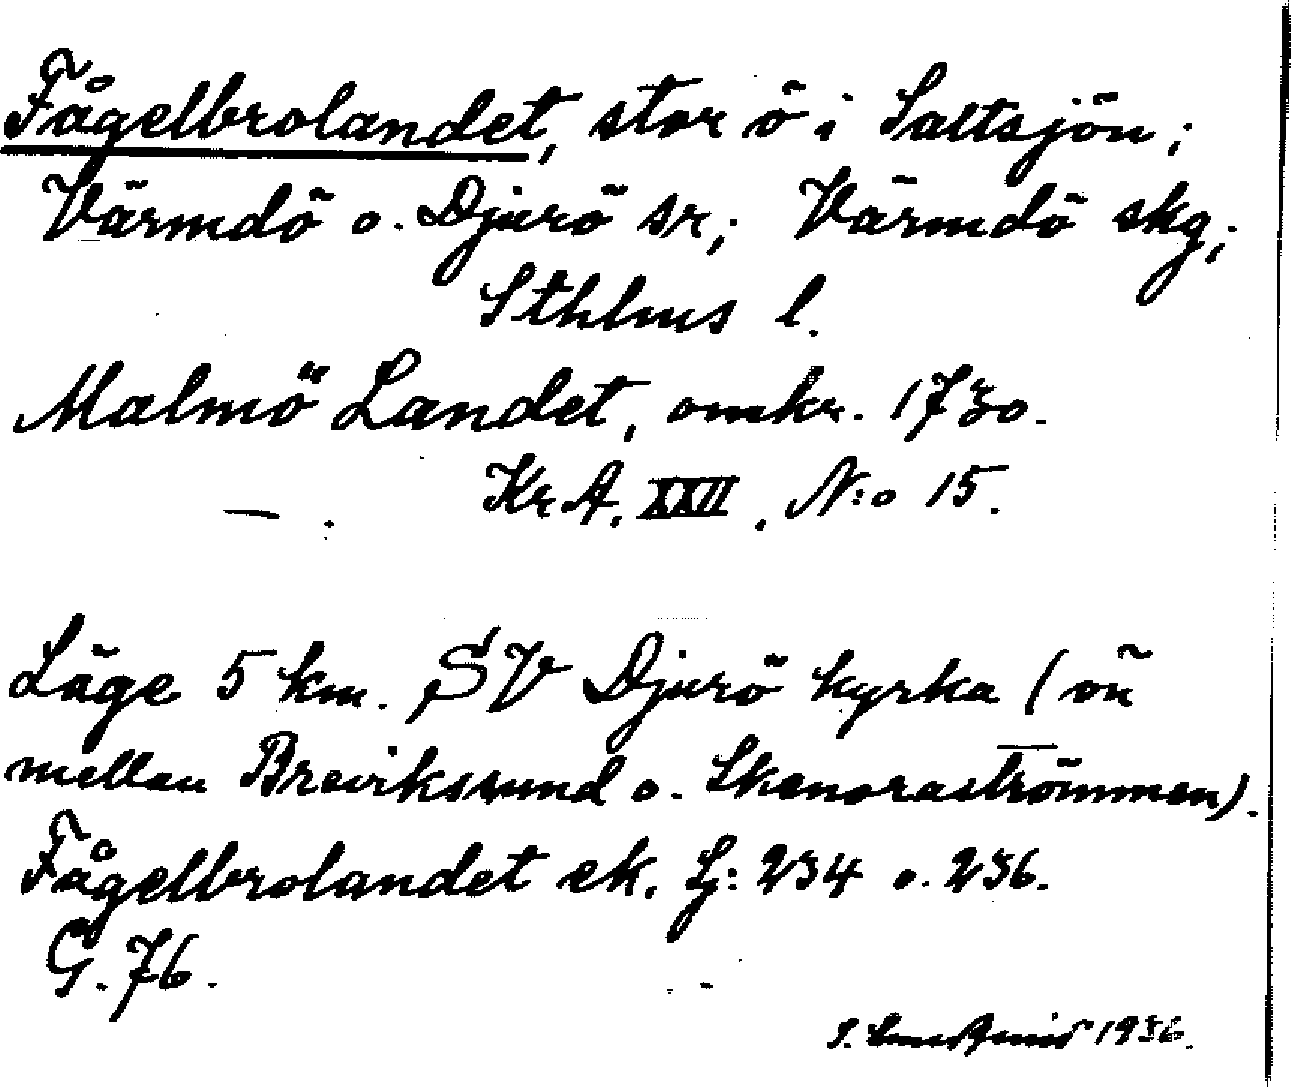 Fågelbrolandet, stor ö i Saltsjön;
Värmdö o. Djurö sr; Värmdö skg;
Sthlms l.
Malmö Landet, omkr. 1730.
Kr. A. XXII. N:o 15.
Läge 5 km. SV Djurö kyrka (ön
mellan Breviksund o. Skenoraströmmen).
Fågelbrolandet ek. Lj: 234 o. 236.
G. 76.
S. 1936.